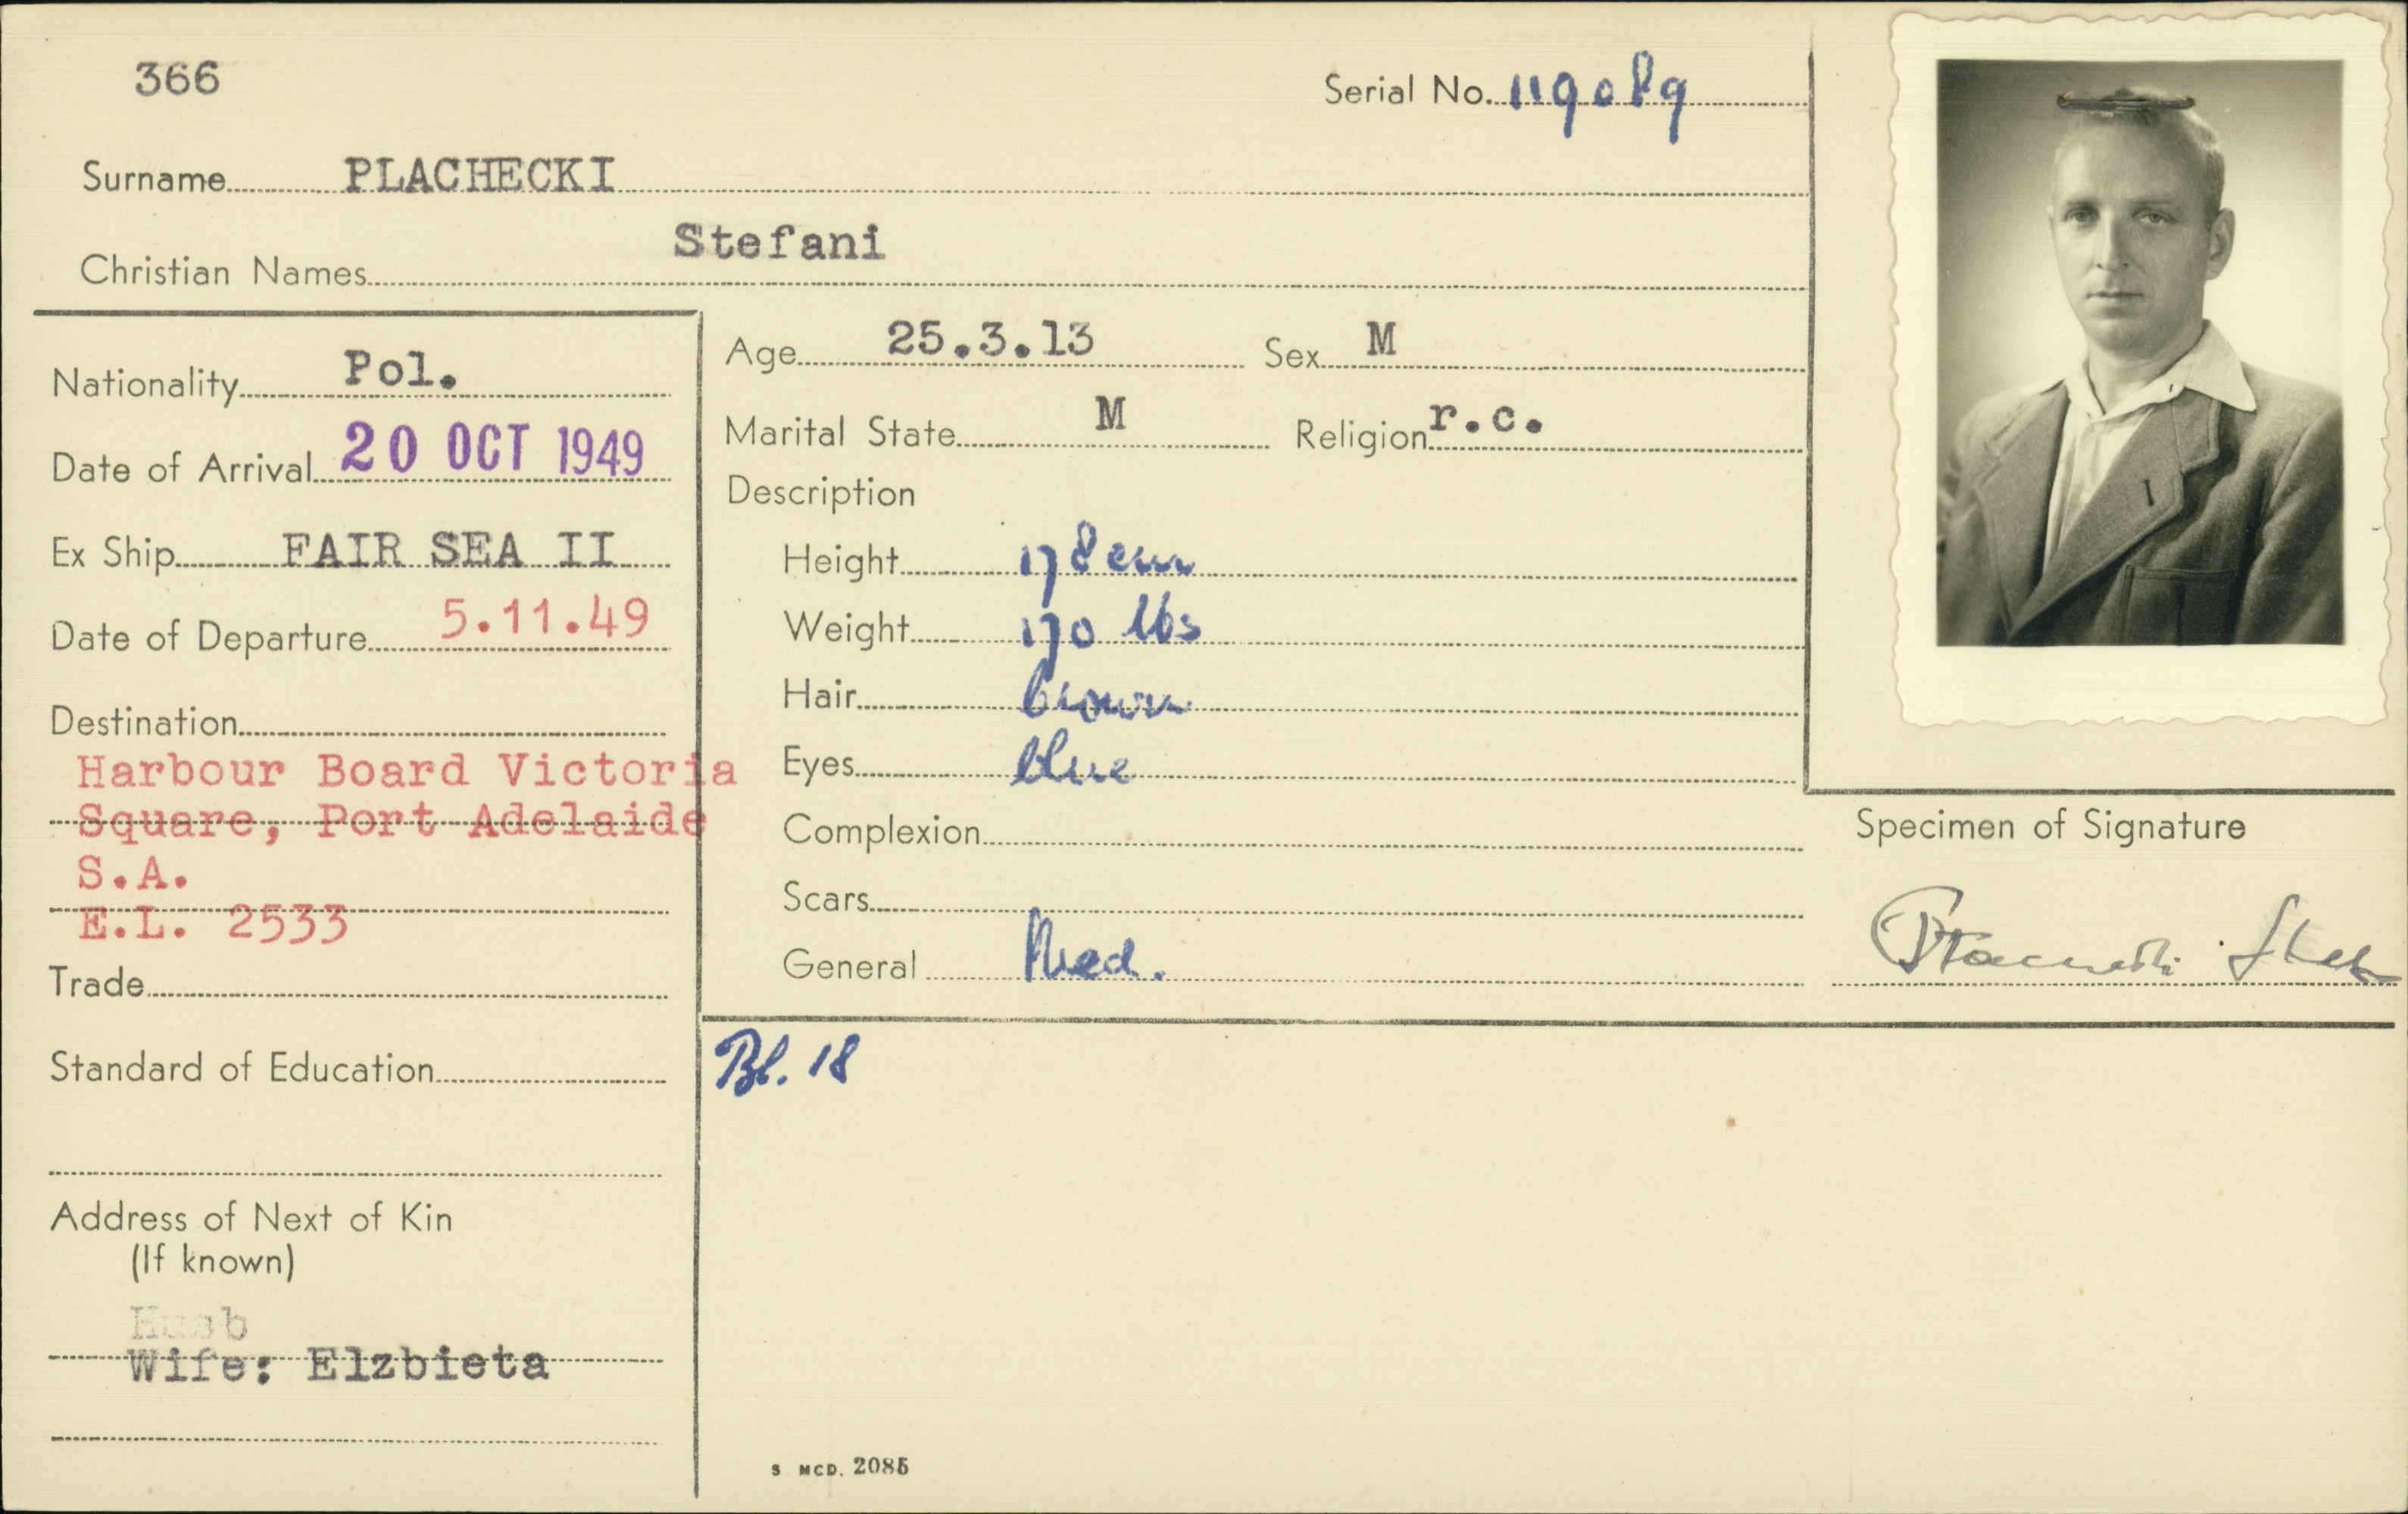 366
Serial No. 119089
Surname PLACHECKI
Christian Names Stefani
Nationality Pol.
Date of Arrival 20 OCT 1949
Ex Ship FAIR SEA II
Date of Departure 5.11.49
Destination
Harbour Board Victoria
Square, Port Adelaide
S.A.
E.L. 2533
Trade
Standard of Education
Address of Next of Kin
(If known)
Husb
Wife: Elzbieta
Age 25.3.13 Sex M
Marital State M Religion r.c.
Description
Height 178 cm
Weight 170 lbs
Hair brown
Eyes blue
Complexion
Scars
General Med.
Bl. 18
S MCD. 2085
Specimen of Signature